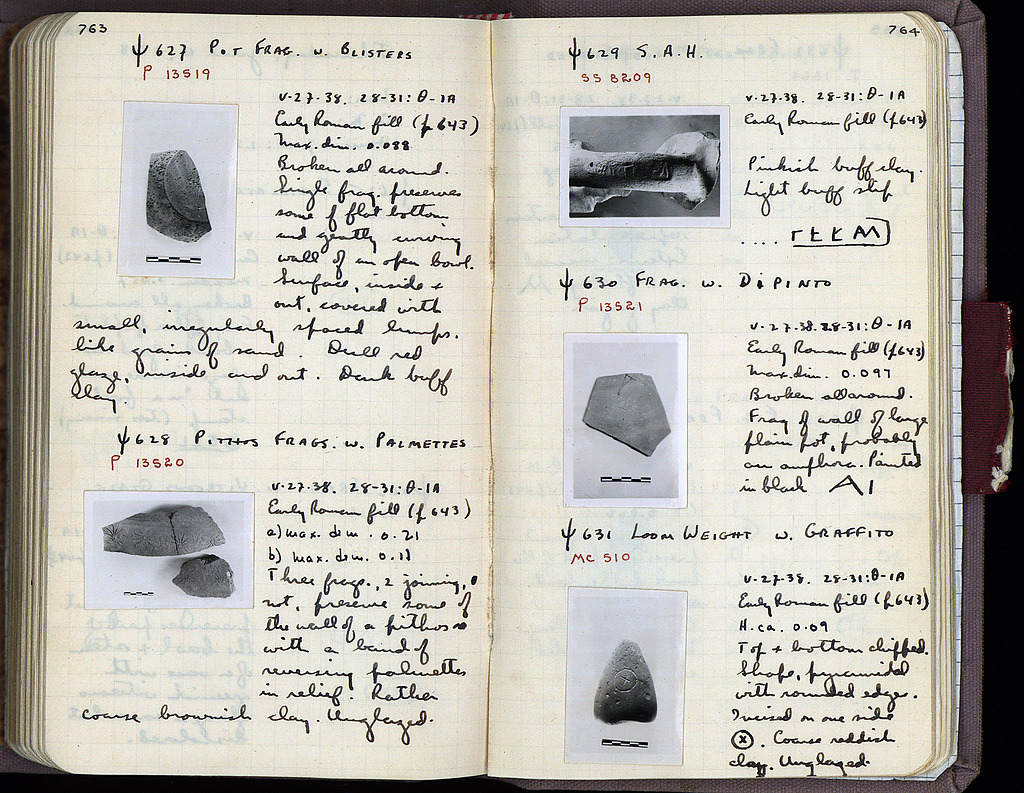 763
Ψ 627 POT FRAG. W. BLISTERS
P 13519
V-27-38. 28-31:Θ-1A
Early Roman fill (p. 643)
Max. dim. 0.088
Broken all around.
Single frag. preserves
some of flat bottom
and gently curving
wall of an open bowl.
Surface, inside +
out, covered with
small, irregularly spaced lumps,
like grains of sand. Dull red
glaze, inside and out. Dark buff
clay.
Ψ 628 PITHOS FRAGS. W. PALMETTES
P 13520
V-27-38. 28-31:Θ-1A
Early Roman fill (p. 643)
a) max. dim. 0.21
b) max. dim. 0.11
Three frags., 2 joining, 1
not, preserve some of
the wall of a pithos
with a band of
reversing palmettes
in relief. Rather
coarse brownish clay. Unglazed.
764
Ψ 629 S.A.H.
SS 8209
V-27-38. 28-31:Θ-1A
Early Roman fill (p. 643)
Pinkish buff clay.
Light buff slip
Ψ 630 FRAG. W. DIPINTO
P 13521
V-27-38. 28-31:Θ-1A
Early Roman fill (p. 643)
Max. dim. 0.097
Broken all around.
Frag. of wall of large
plain pot, probably
an amphora. Painted
in black AI
Ψ 631 LOOM WEIGHT W. GRAFFITO
MC 510
V-27-38. 28-31:Θ-1A
Early Roman fill (p. 643)
H. ca. 0.09
Top + bottom chipped.
Shape, pyramidal
with rounded edges.
Incised on one side
ⓧ. Coarse reddish
clay. Unglazed.